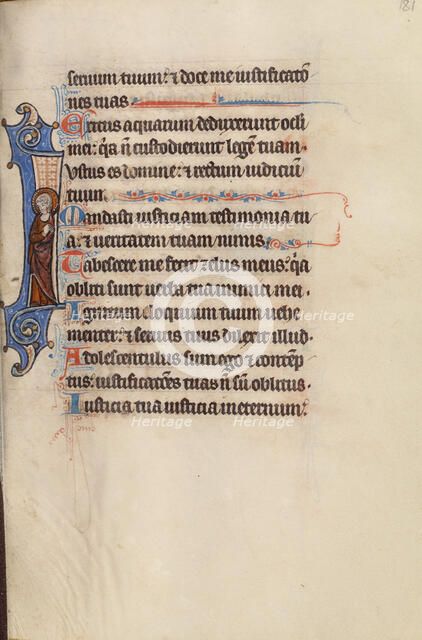 181
seruum tuum: & doce me iustificatio
nes tuas
Exitus aquarum deduxerunt oculi
mei: qa n custodierunt legem tuam.
Iustus es domine: & rectum iudicium
tuum.
Mandasti iusticiam testimonia tu
a: & ueritatem tuam nimis.
Tabescere me fecit zelus meus: qa
obliti sunt uerba tua inimici mei.
Ignitum eloquium tuum uehe
menter: & seruus tuus dilexit illud.
Adolescentulus sum ego & contemp
tus: iustificationes tuas n sum oblitus.
Iusticia tua iusticia in eternum:
Heritage
Heritage
Heritage
Heritage
Heritage